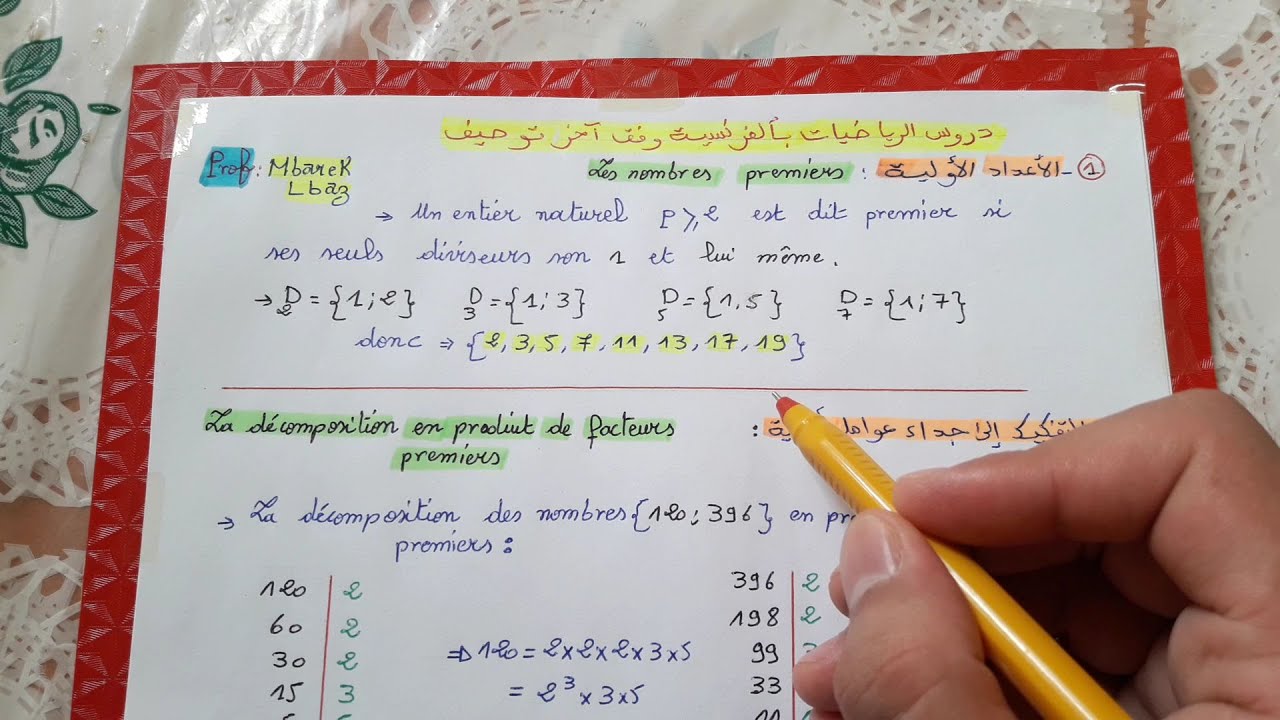 دروس الرياضيات بالفرنسية وفق آخر توصيف
Prof: Mbarek Lbaz
Les nombres premiers : الأعداد الأولية -1
→ Un entier naturel p ⩾ 2 est dit premier si
ses seuls diviseurs son 1 et lui même.
→ D₂ = {1;2} D₃ = {1;3} D₅ = {1,5} D₇ = {1;7}
donc ⇒ {2,3,5,7,11,13,17,19}
La décomposition en produit de facteurs premiers : التفكيك إلى جداء عوامل
→ La décomposition des nombres {120;396} en
premiers :
120 | 2
60 | 2
30 | 2
15 | 3
⇒ 120 = 2×2×2×3×5
= 2³×3×5
396 | 2
198 | 2
99
33
11